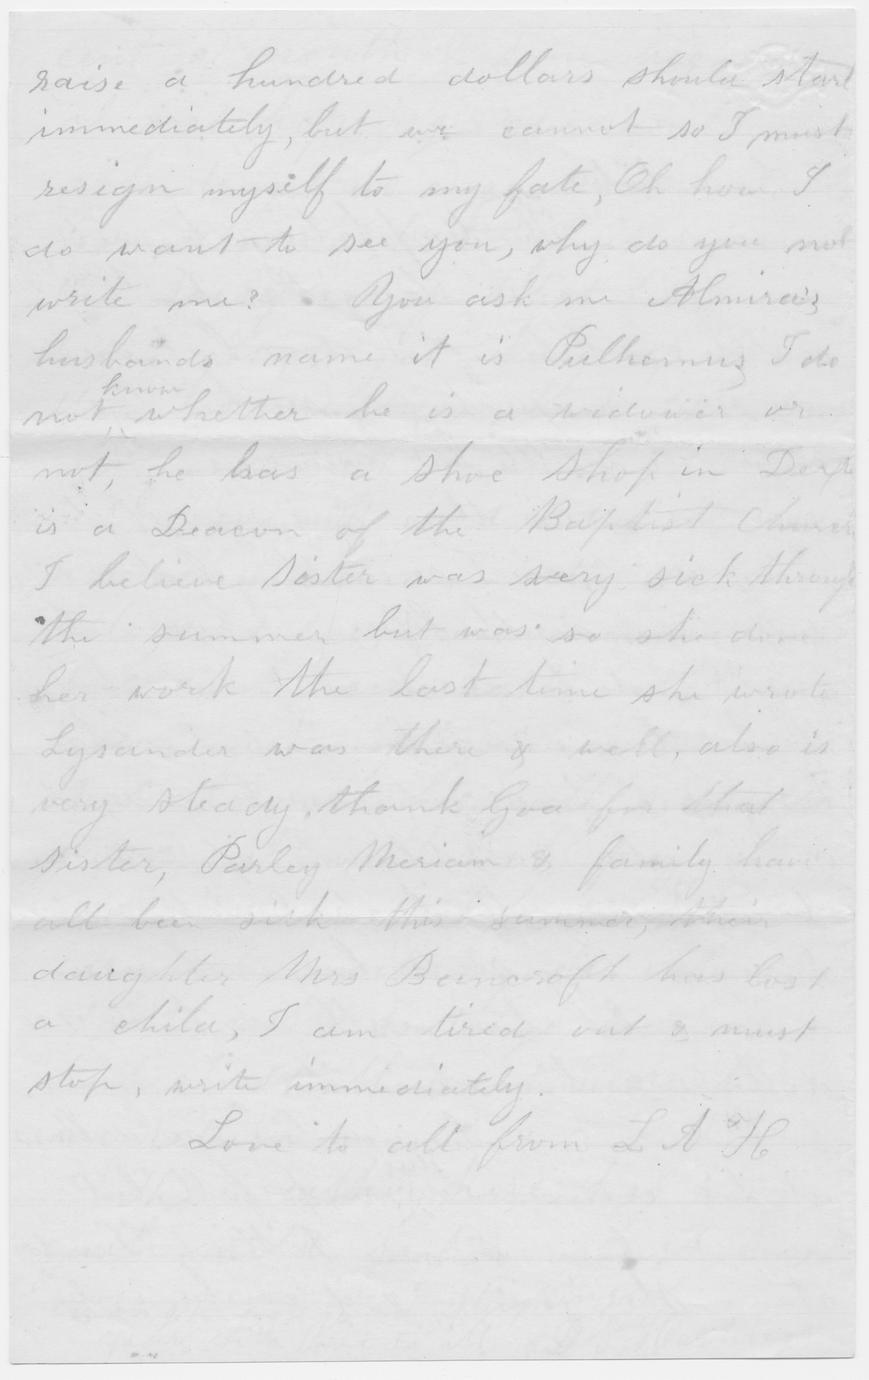 raise a hundred dollars should start
immediately, but we cannot so I must
resign myself to my fate, Oh how I
do want to see you, why do you not
write me? You ask me Almira's
husbands name it is Pulhemus, I do
know
not whether he is a widower or
not, he has a shoe shop in
is a Deacon of the Baptist Church
I believe Sister was very sick through
the summer but was so she done
her work the last time she wrote
Lysander was there & well, also is
very steady, thank God for that
sister, Parley Meriam & family have
all been sick this summer, their
daughter Mrs Bancroft has lost
a child, I am tired out & must
stop, write immediately.
Love to all from L A H